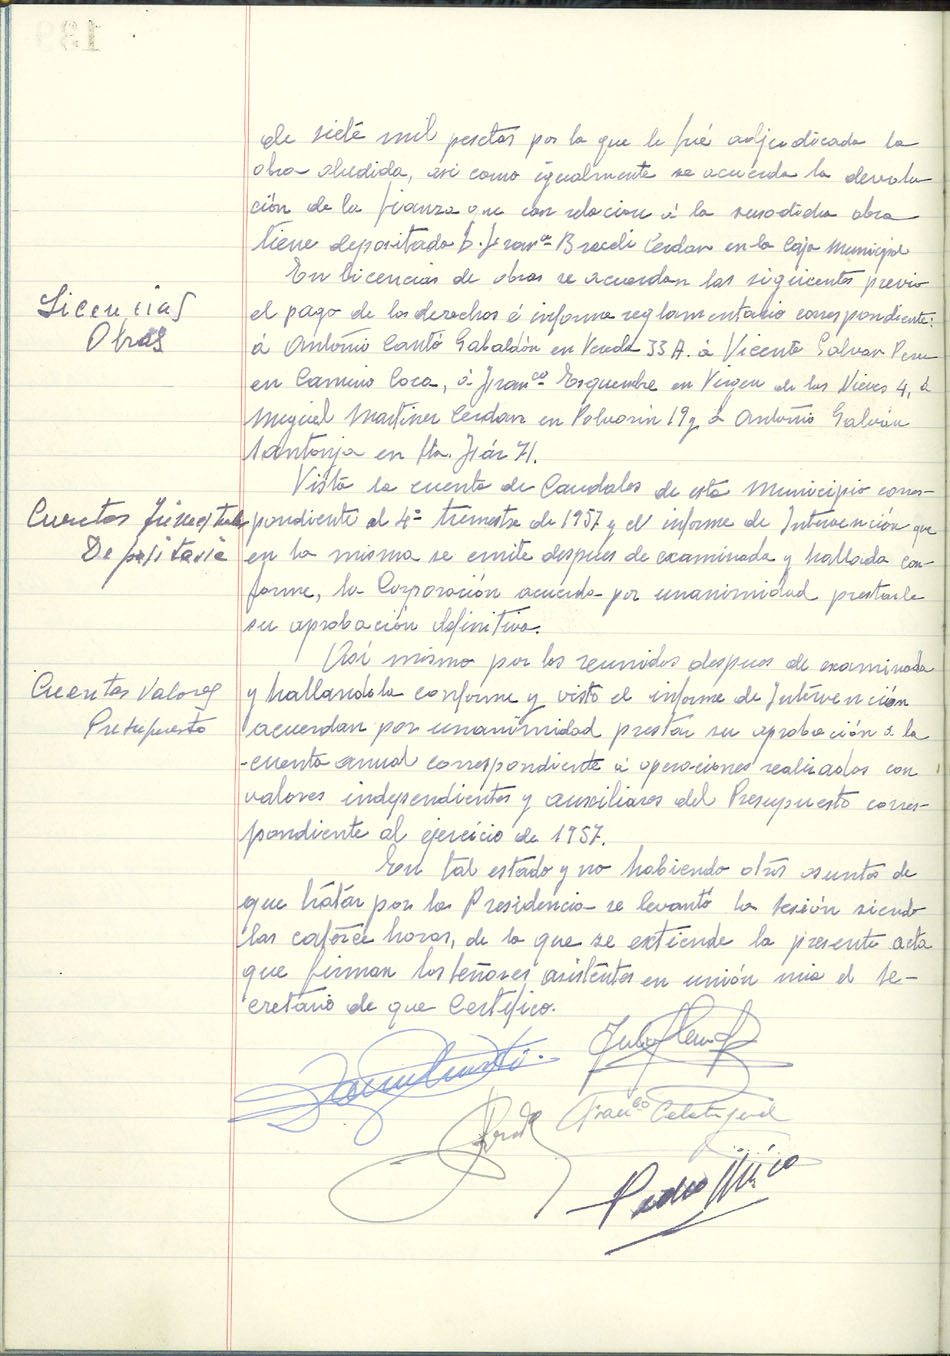 de siete mil pesetas por la que le fué adjudicada la
obra aludida, asi como igualmente se acuerda la devolu
ción de la fianza que con relacion á la susodicha obra
tiene depositada D. Franco Cerdan en la Caja Municipal
Licencias
Obras
En licencias de obras se acuerdan las siguientes previo
el pago de los derechos é informe reglamentario correspondiente:
á Antonio Cantó Gabaldón en Vereda 33 A. á Vicente Galvan
en Camino Coca, á Franco Esquembre en Virgen de las Nieves 4, á
Miguel Martinez Cerdan en Polvorin 19 y á Antonio Galván
Santonja en 71.
Cuentas
Depositaria
Vista la cuenta de Caudales de este Municipio corres-
pondiente al 4º trimestre de 1957 y el informe de Intervención que
en la misma se emite despues de examinada y hallada con-
forme, la Corporación acuerda por unanimidad prestarle
su aprobación definitiva.
Cuentas Valores
Presupuesto
Asi mismo por los reunidos despues de examinada
y hallandola conforme y visto el informe de Intervención
acuerdan por unanimidad prestar su aprobación a la
cuenta anual correspondiente á operaciones realizadas con
valores independientes y auxiliares del Presupuesto corres-
pondiente al ejercicio de 1957.
En tal estado y no habiendo otros asuntos de
que tratar por la Presidencia se levantó la sesión siendo
las catorce horas, de lo que se extiende la presente acta
que firman los señores asistentes en unión mia el Se-
cretario de que Certifico.
Franco
Pedro Micó